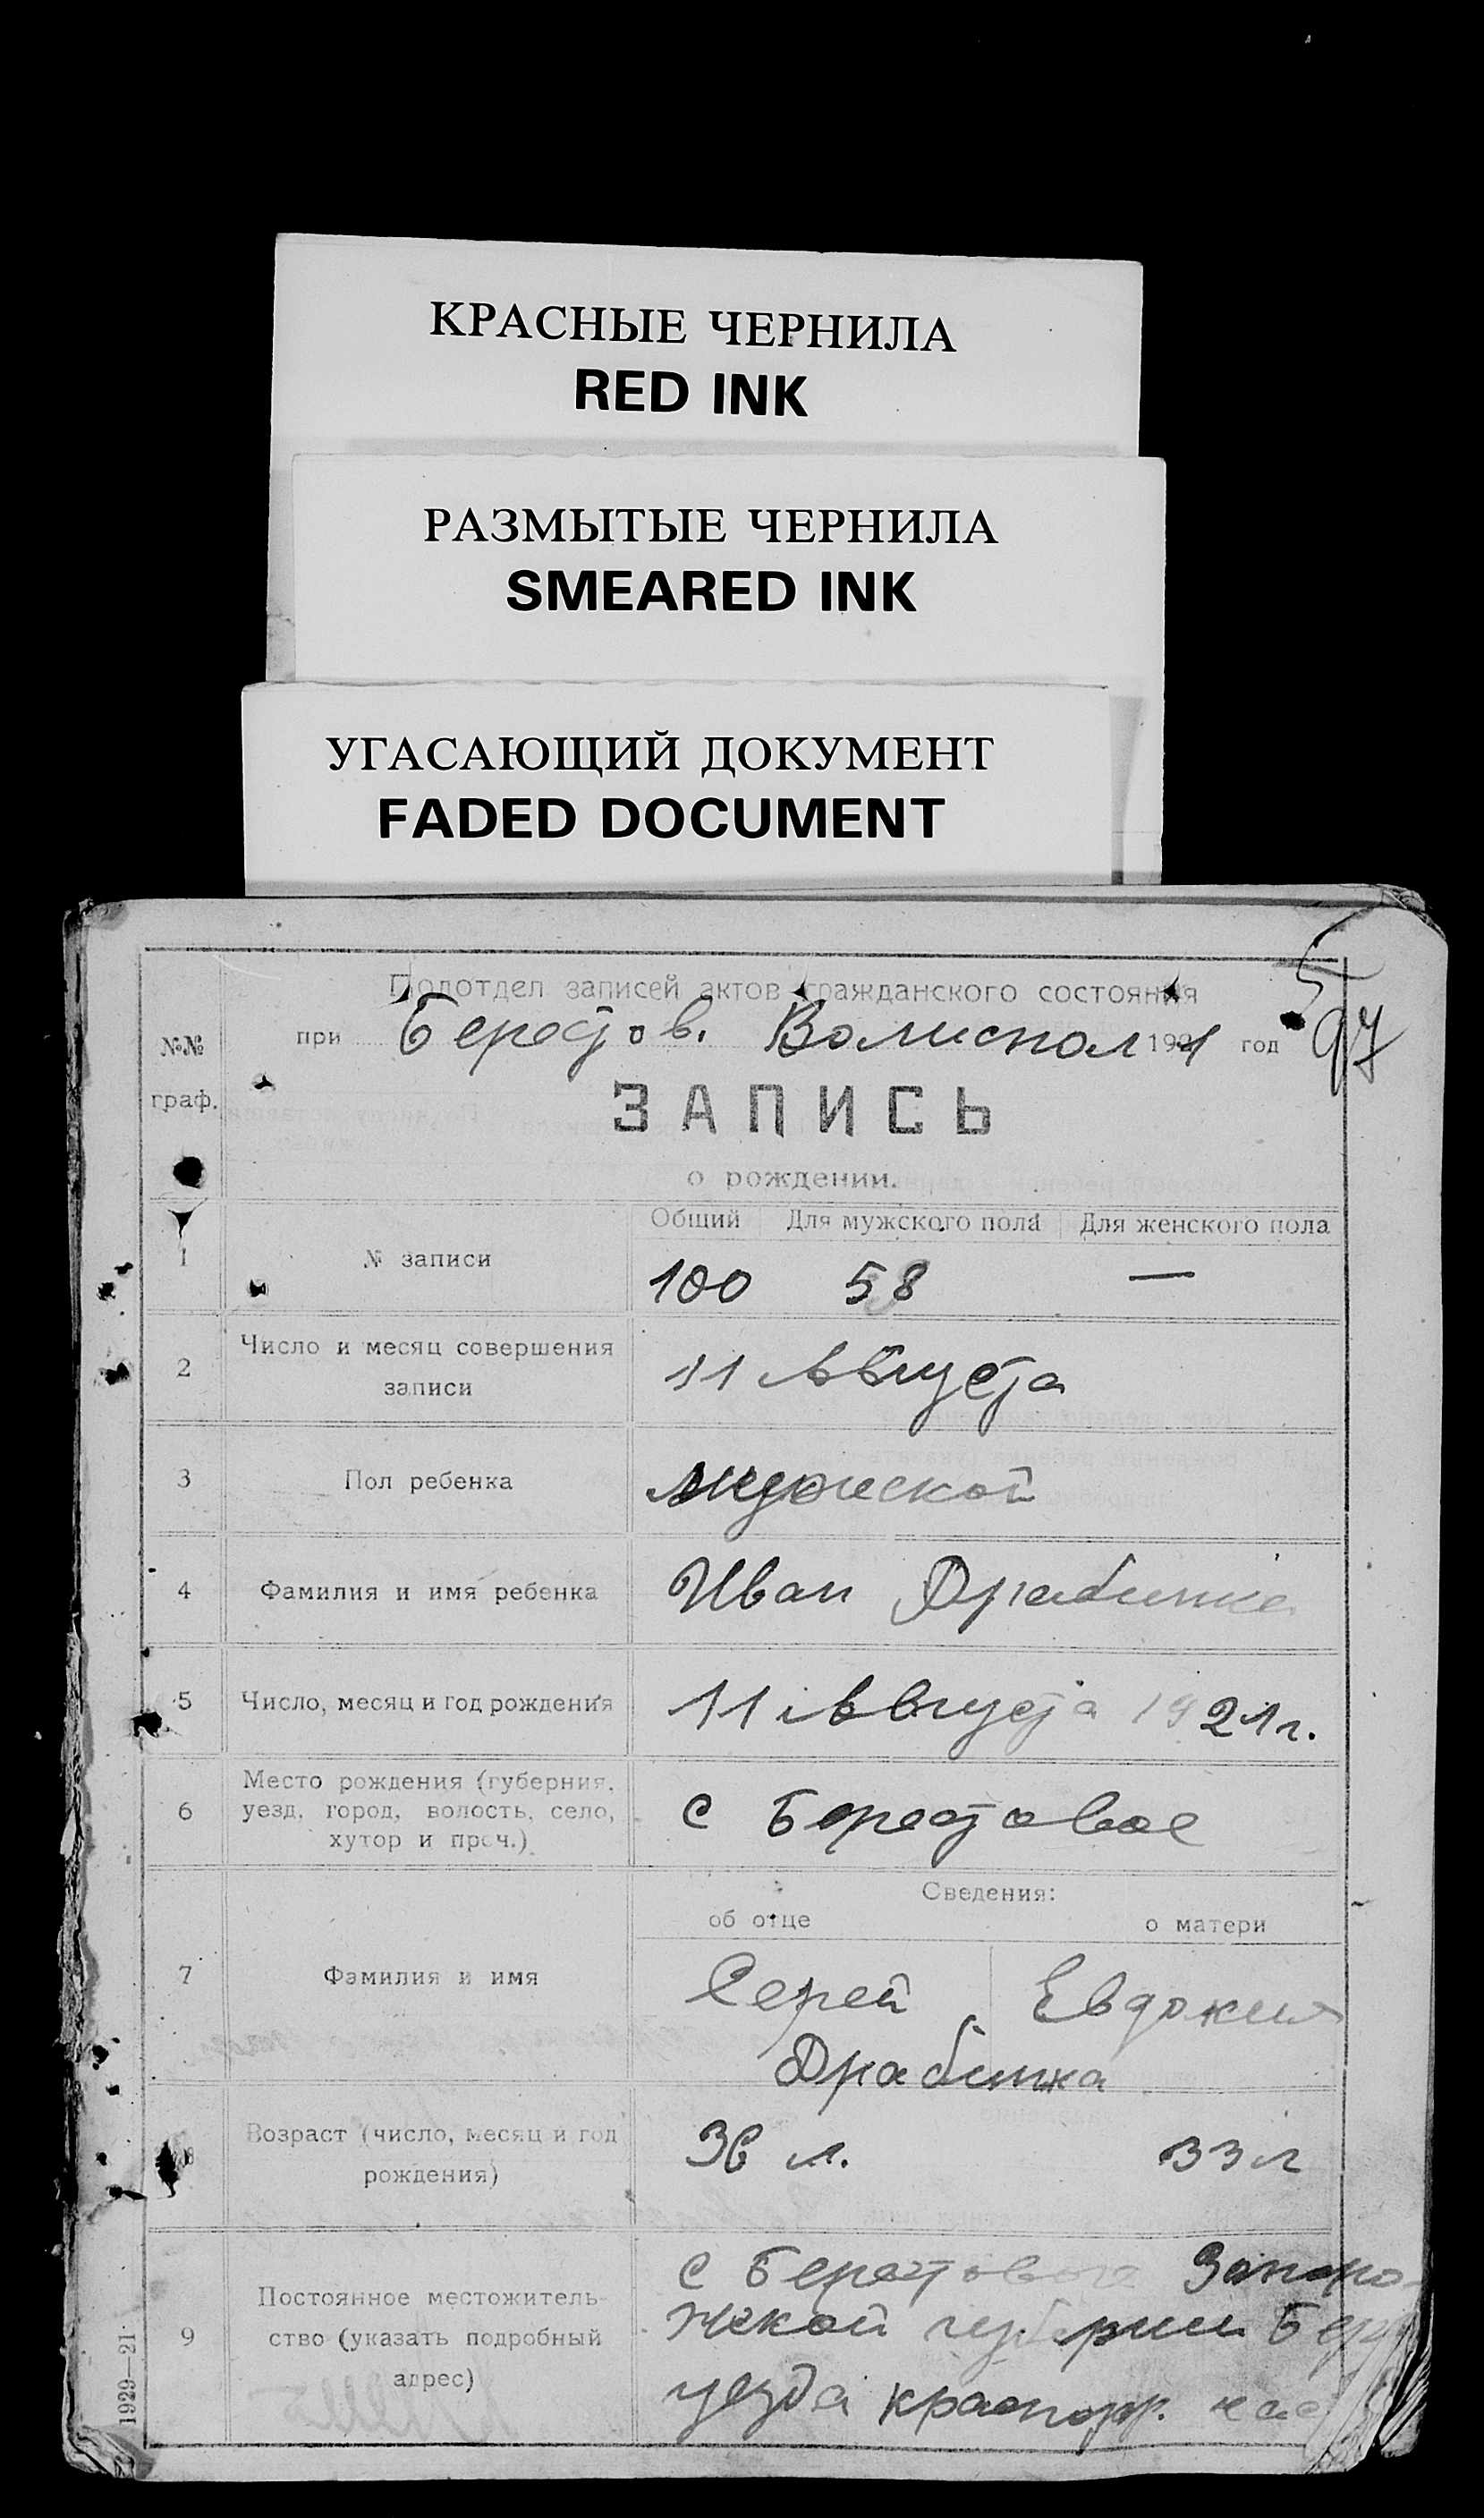 КРАСНЫЕ ЧЕРНИЛА
RED INK
РАЗМЫТЫЕ ЧЕРНИЛА
SMEARED INK
УГАСАЮЩИЙ ДОКУМЕНТ
FADED DOCUMENT
97
Подотдел записей актов гражданского состояния
при Берестов. Волиспол 1921 год
№№
граф.
ЗАПИСЬ
о рождении.
Общий Для мужского пола Для женского пола
1 № записи 100 58 —
2 Число и месяц совершения
записи
11 Августа
3 Пол ребенка мужеской
4 Фамилия и имя ребенка Иван Драбинка
5 Число, месяц и год рождения 11 Августа 1921 г.
Место рождения (губерния,
6 уезд, город, волость, село,
хутор и проч.)
с Берестовое
Сведения:
об отце о матери
7 Фамилия и имя
Сергей Евдокия
Драбинка
8 Возраст (число, месяц и год
рождения)
36 л. 33 л
9 Постоянное местожитель-
ство (указать подробный
адрес)
с Берестовое Запоро-
жской губернии
уезда
1929—21